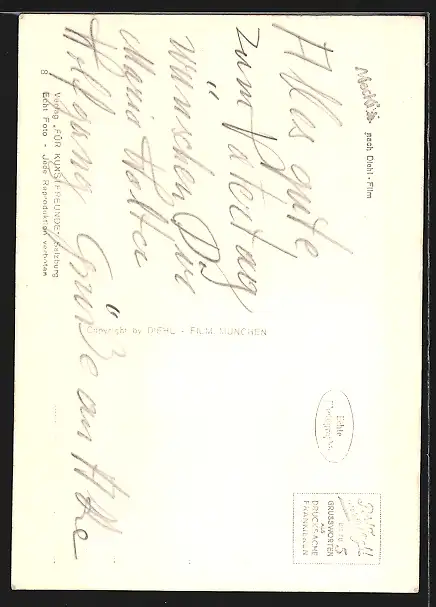 Mecki
nach Diehl-Film
Alles gute
zum Vatertag
wünschen Dir
Maria Holter
Wolfgang Grüße an Ilse
Verlag „FÜR KUNSTFREUNDE“, Salzburg
8 Echt Foto - Jede Reproduktion verboten
Copyright by DIEHL - FILM, MÜNCHEN
Echte
Photographie
5
GRUSSWORTEN
als
DRUCKSACHE
FRANKIEREN